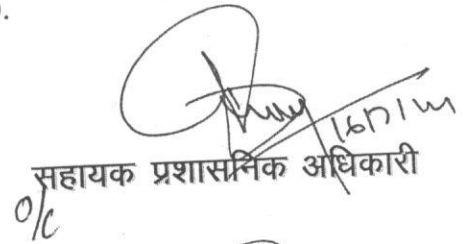 सहायक प्रशासनिक अधिकारी
O/C